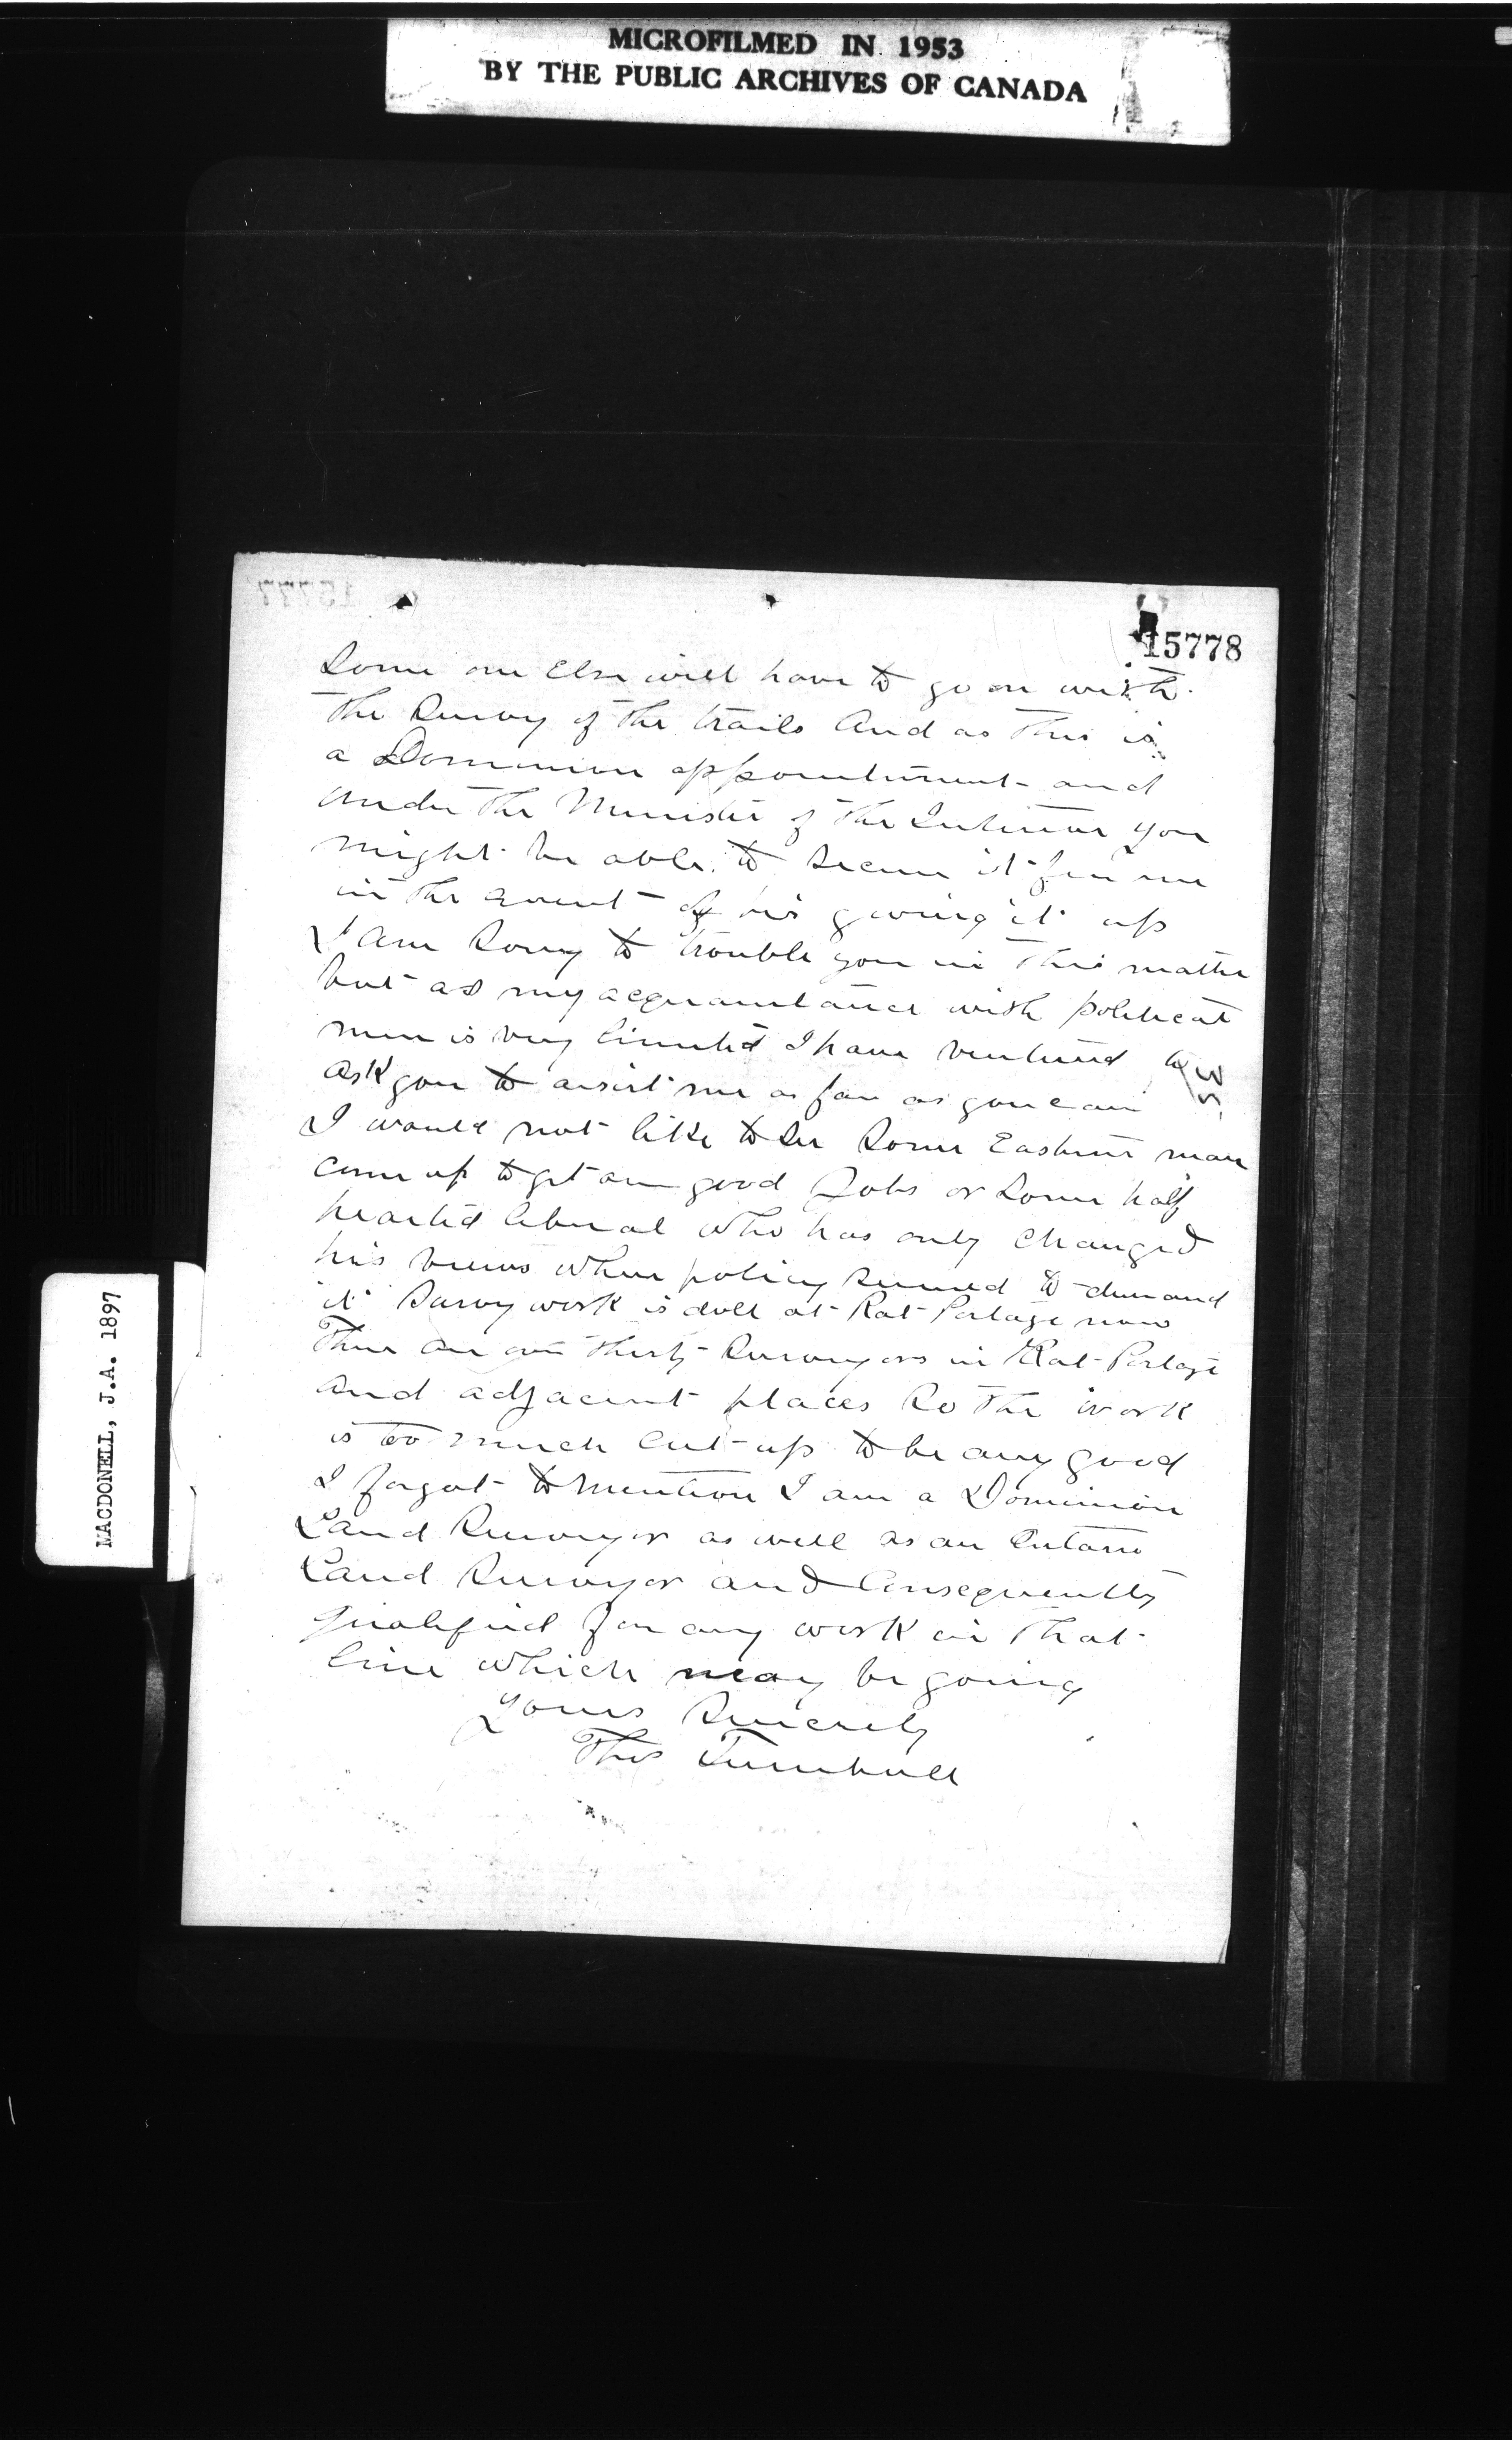 MICROFILMED IN 1953
BY THE PUBLIC ARCHIVES OF CANADA
15777
15778
Some one Else will have to go on with
the Survey of the trails And as this is
a Dominion appointment and
under the Minister of the Interior you
might be able to secure it for me
in the event of his giving it up
I am Sorry to trouble you in this matter
but as my acquaintance with political
men is very limited I have ventured to
ask you to assist me as far as you can
I would not like to See Some Eastern man
come up to get our good Jobs or Some half
hearted liberal who has only Changed
his views when policy seemed to demand
it Survey work is dull at Rat Portage now
There are over thirty Surveyors in Rat Portage
and adjacent places So the work
is too much Cut up to be any good
I forgot to Mention I am a Dominion
Land Surveyor as well as an Ontario
Land Surveyor and Consequently
qualified for any work in that
line which may be going
Yours Sincerely
Thos Turnbull
MACDONELL, J.A. 1897